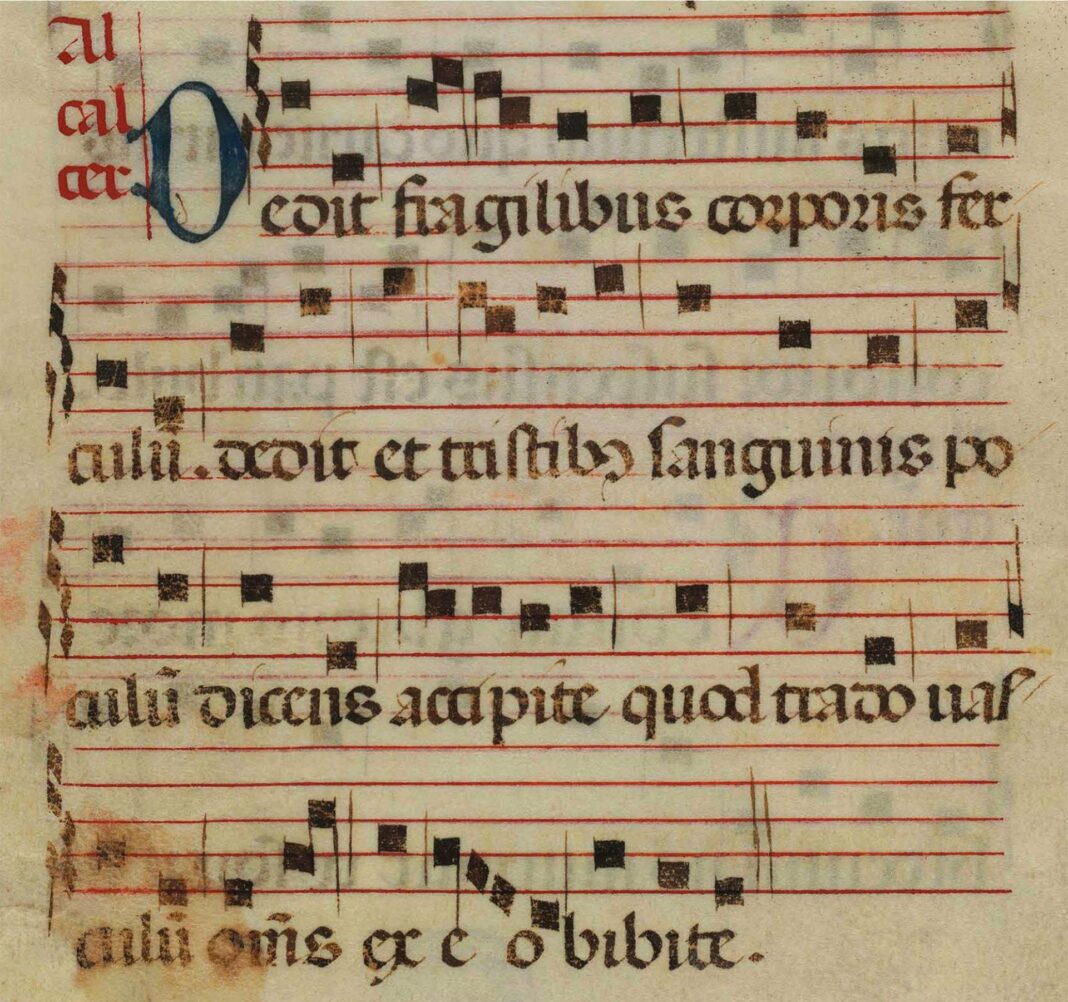 al
cal
cer
Dedit fragilibus corporis fer
culū. dedit et tristibꝫ sanguinis po
culū dicens accipite quod trado uas
culū om̄s ex e o bibite.